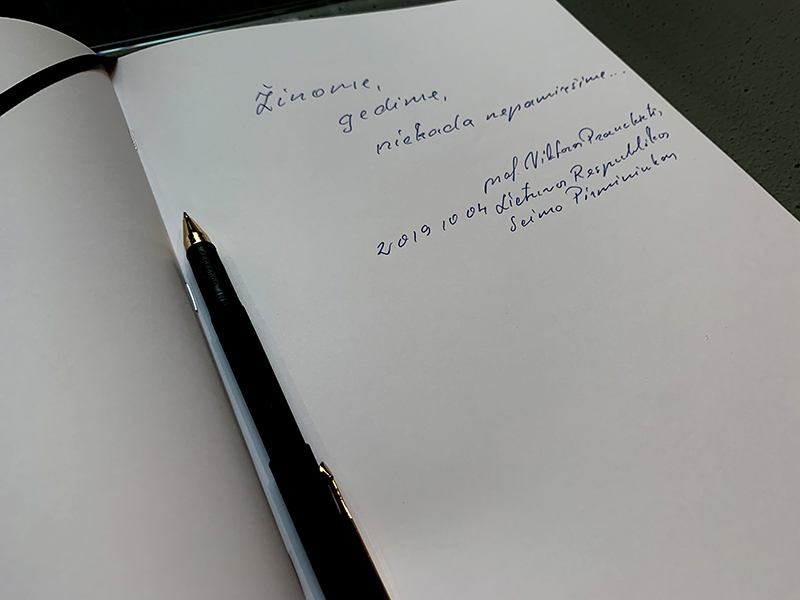 Žinome,
gedime,
niekada nepamiršime...
prof. Viktoras Pranckietis,
2019 10 04 Lietuvos Respublikos
Seimo Pirmininkas